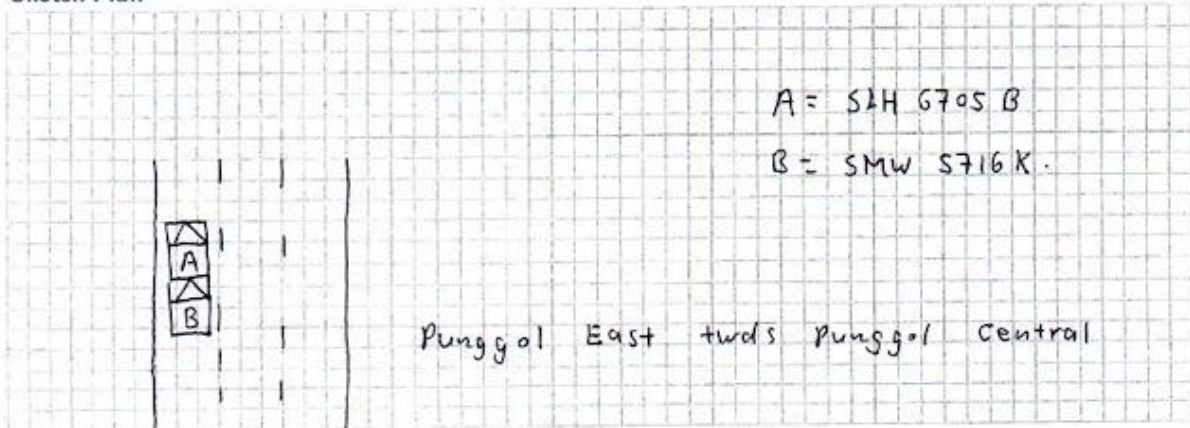 A = SLH 6705 B
B = SMW 5716 K.
A
B
Punggol East twds Punggol Central